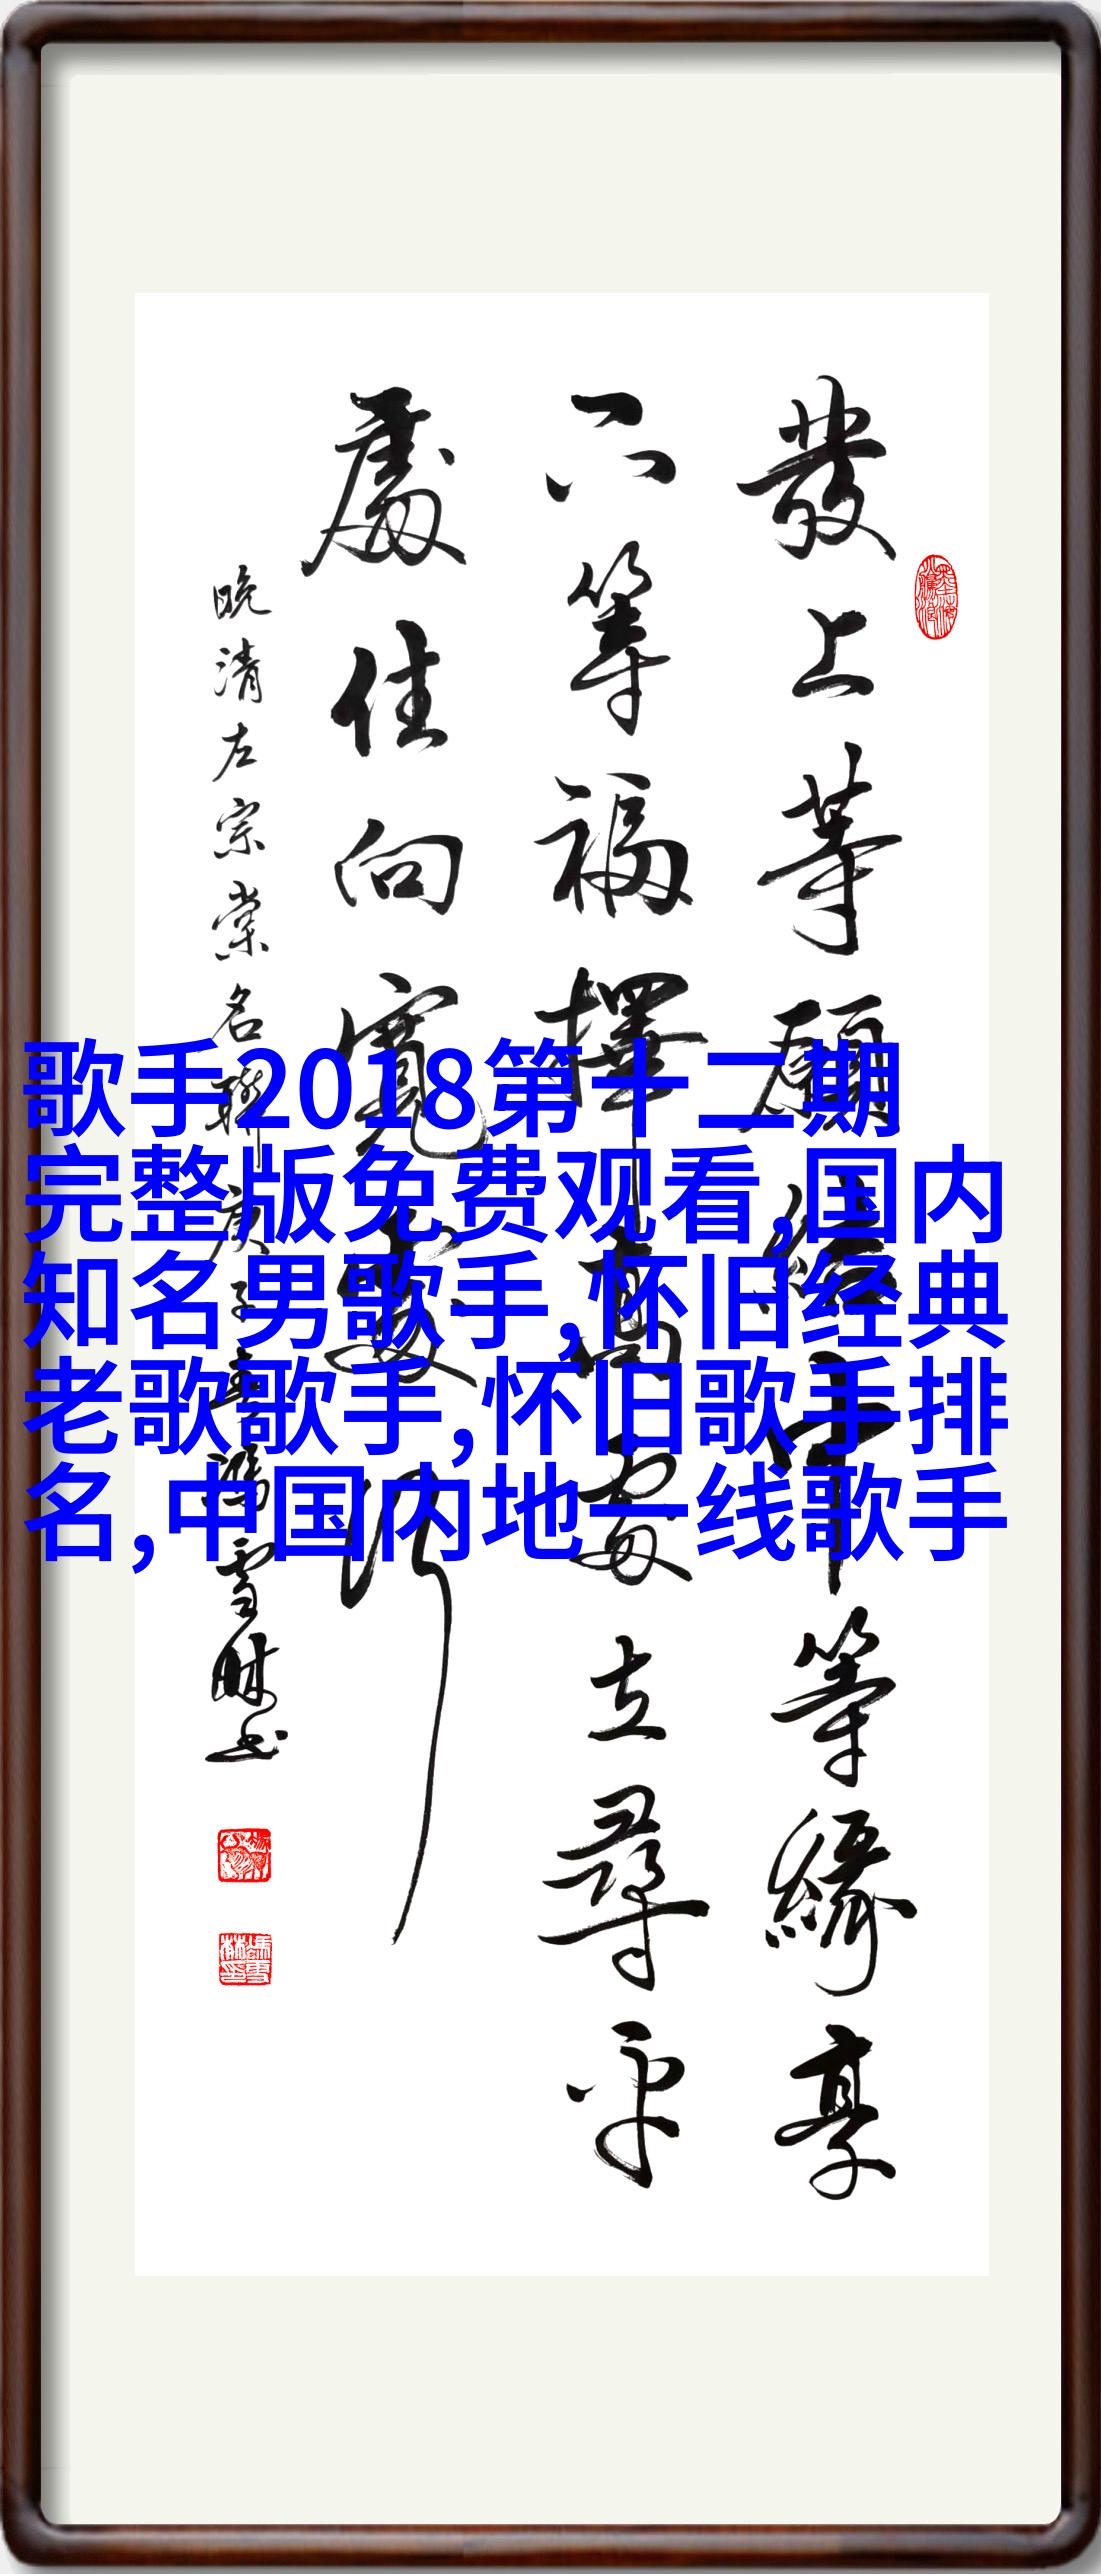 發上等願結中等緣享
下等福擇高處立尋平
處住向寬處行
晚清左宗棠名聯庚子馮雪林书
歌手2018第十二期
完整版免费观看,国内
知名男歌手,怀旧经典
老歌歌手,怀旧歌手排
名,中国内地一线歌手